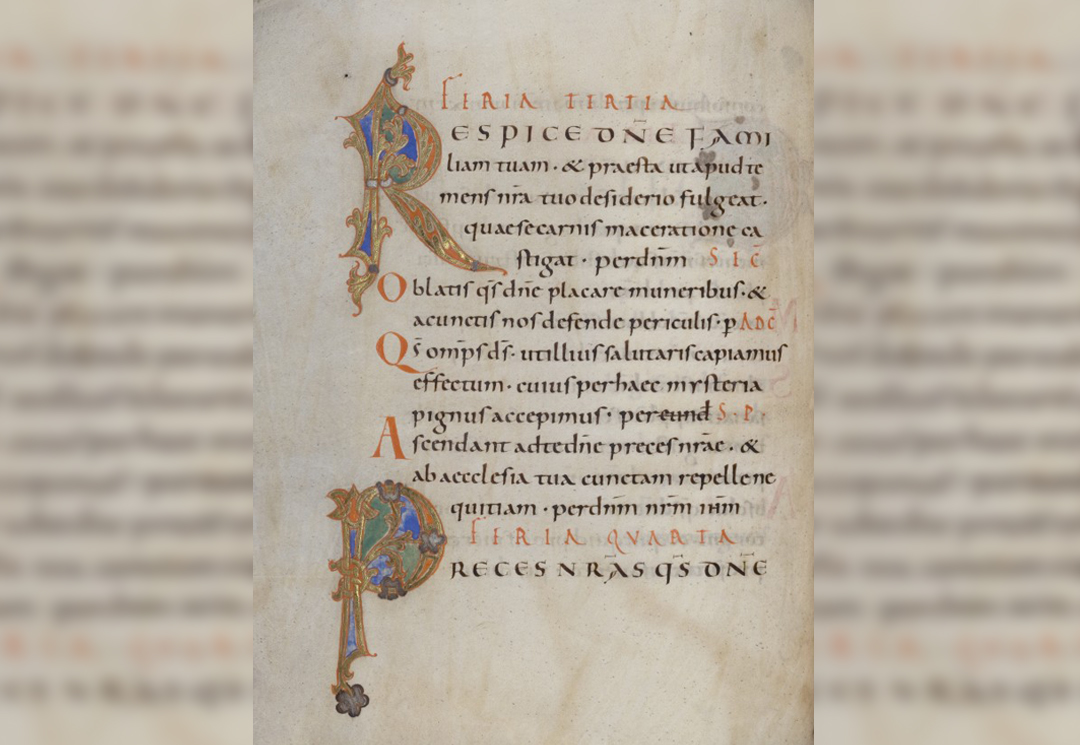 FERIA TERTIA
RESPICE DN̄E FAMI
liam tuam · & praesta ut apud te
mens nr̄a tuo desiderio fulgeat ·
quae se carnis maceratione ca
stigat · per dn̄m SIC̄
Oblatis qs̄ dn̄e placare muneribus · &
a cunctis nos defende periculis · p̄ ADC̄
Qs̄ omps̄ ds̄ · ut illius salutaris capiamus
effectum · cuius per haec mysteria
pignus accepimus · per eund S · P ·
Ascendant ad te dn̄e preces nr̄ae · &
ab aecclesia tua cunctam repelle ne
quitiam · per dn̄m nr̄m ihm̄
FERIA QUARTA
PRECES NR̄AS QS̄ DN̄E